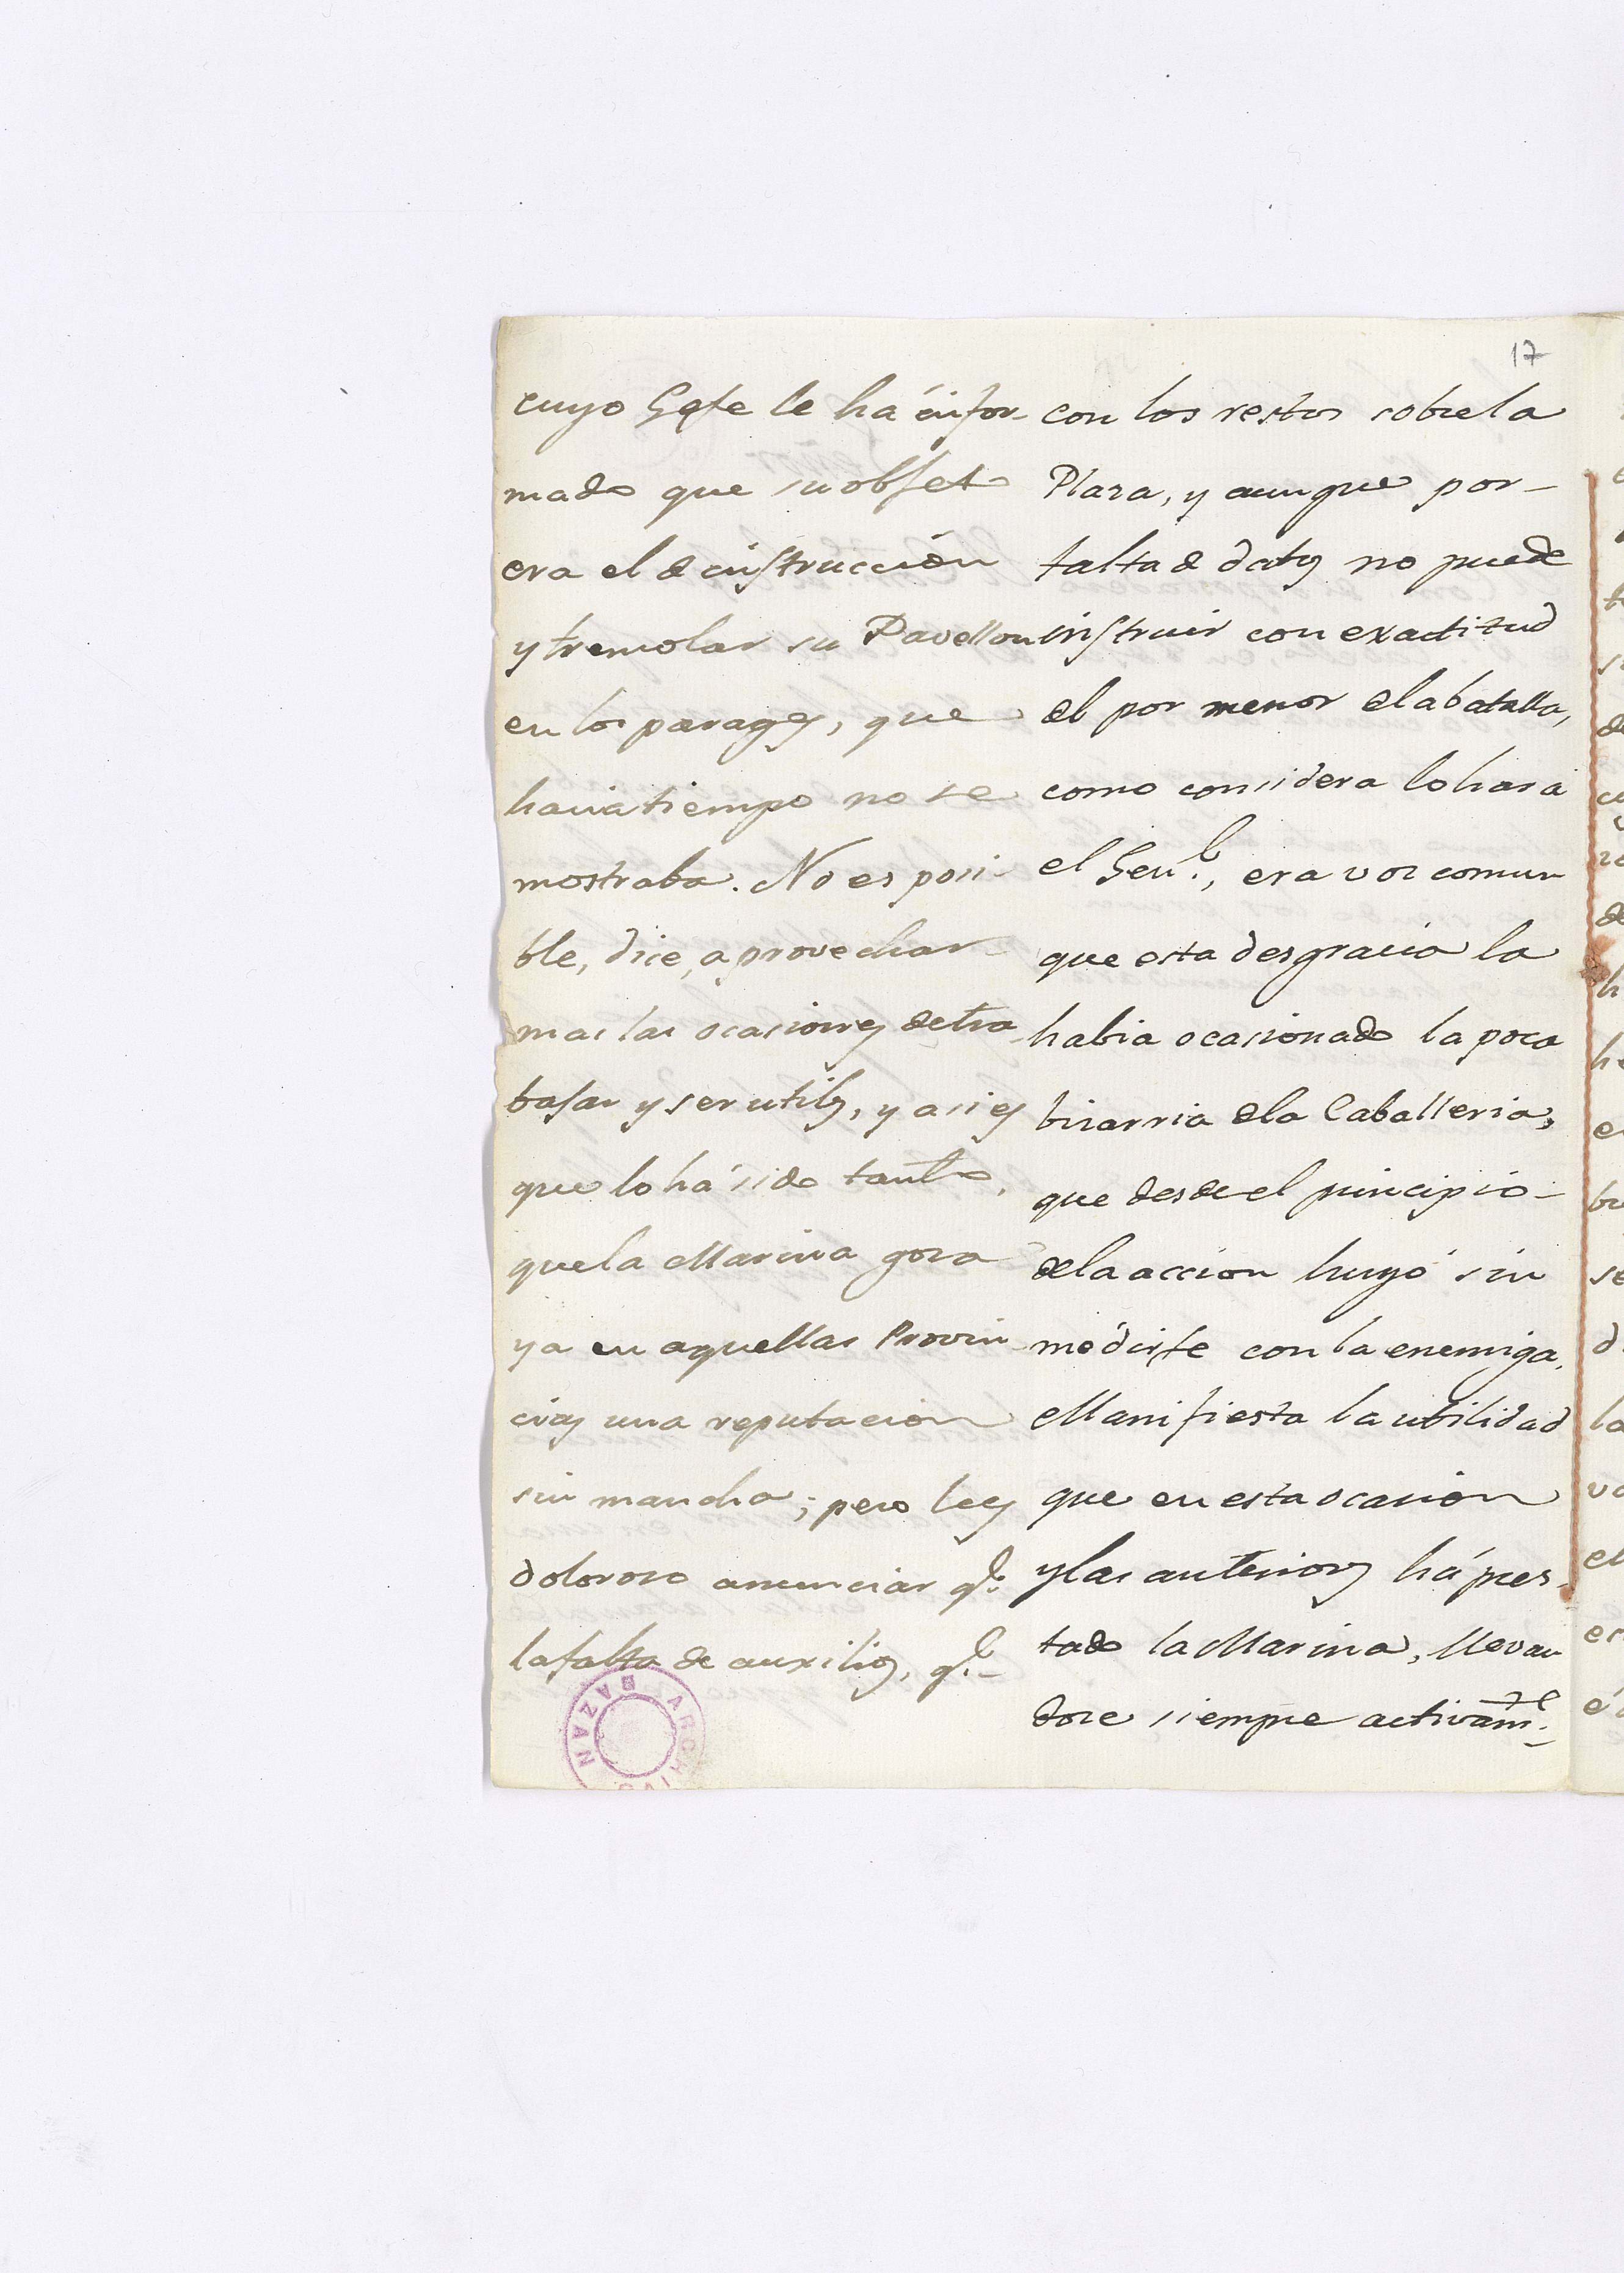 17
cuyo Gefe le há infor-
mado que su objeto
era el de instrucción
y tremolar su Pavellon
en los parages, que
hacia tiempo no se
mostraba. No es posi-
ble, dice, aprovechar
mas las ocasiones de tra-
bajar y ser utiles, y asi es
que lo há sido tanto,
que la Marina goza
ya en aquellas Provin-
cias una reputacion
sin mancha; pero le es
doloroso anunciar qe.
la falta de auxilios, qe.
con los restos sobre la
Plaza, y aunque por-
falta de datos no puede
instruir con exactitud
el por menor de la batalla,
como considera lo hará
el Genl., era voz comun
que esta desgracia la
habia ocasionado la poca
bizarria de la Caballeria,
que desde el principio-
de la accion huyó sin
medirse con la enemiga.
Manifiesta la utilidad
que en esta ocasion
y las anteriores há pres-
tado la Marina, llevan
dose siempre activamte.
ARCHIVO
BAZAN